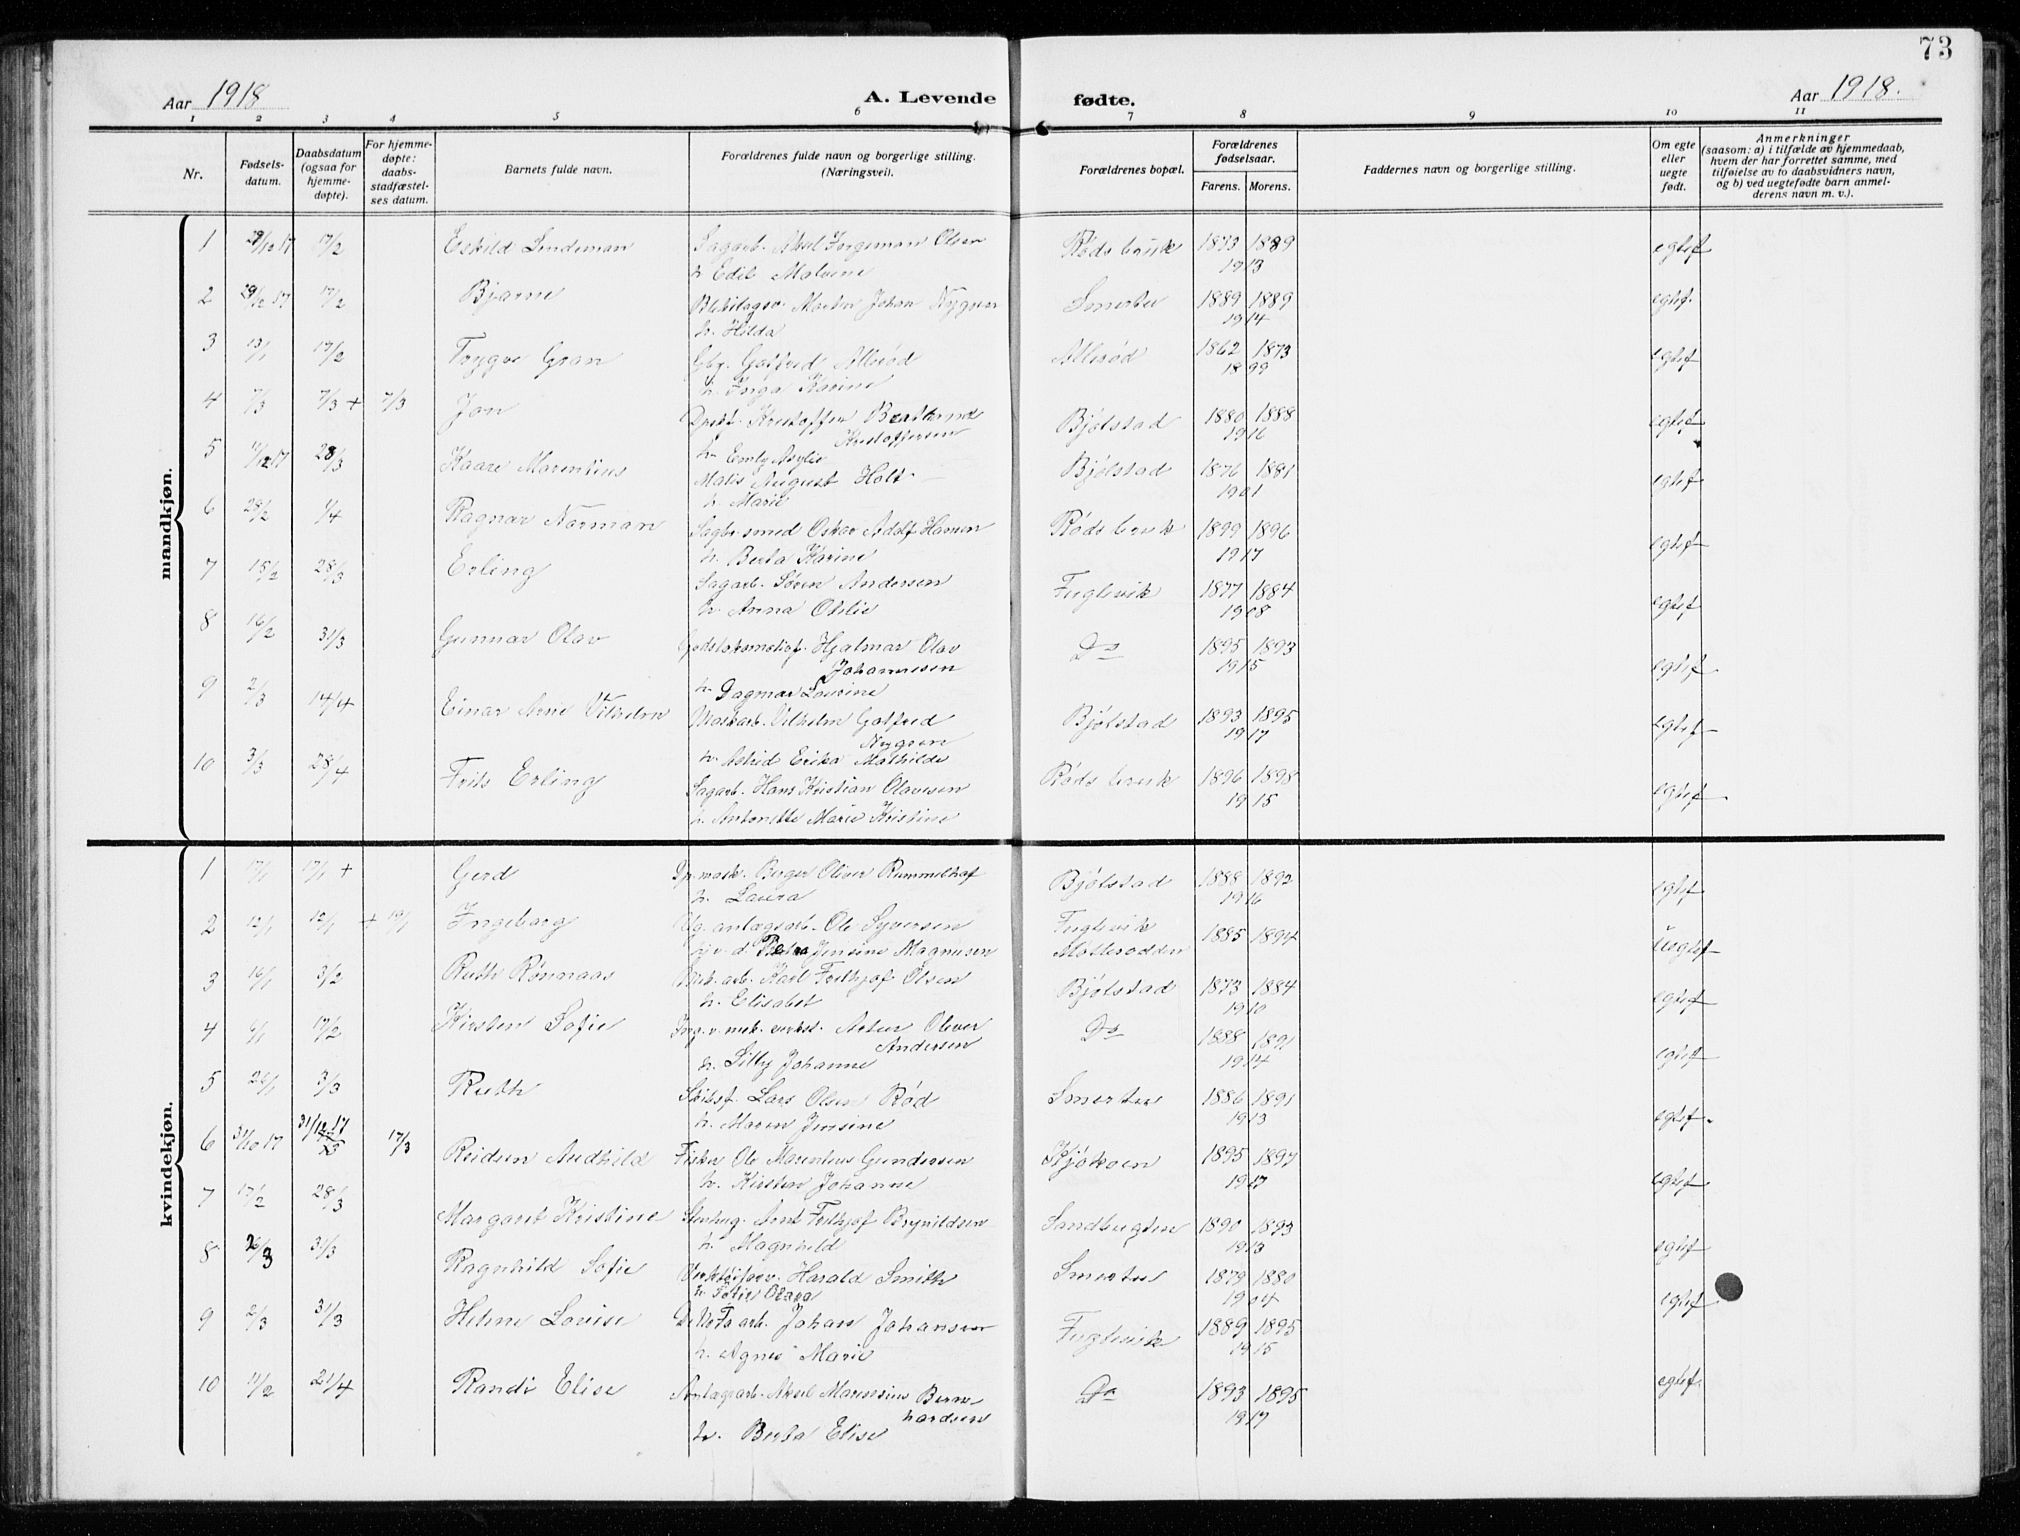 73
Aar 1918
A. Levende fødte.
Aar 1918.
1 2 3 4 5 6 7 8 9 10 11
Nr.
Fødsels-
datum.
Daabsdatum
(ogsaa for
hjemme-
døpte).
For hjemme-
døpte:
daabs-
stadfæstel-
ses datum.
Barnets fulde navn.
Forældrenes fulde navn og borgerlige stilling.
(Næringsvei).
Forældrenes bopæl.
Forældrenes
fødselsaar.
Farens. Morens.
Faddernes navn og borgerlige stilling.
Om egte
eller
uegte
født.
Anmerkninger
(saasom: a) i tilfælde av hjemmedaab,
hvem der har forrettet samme, med
tilføielse av to daabsvidners navn,
og b) ved uegtefødte barn anmel-
derens navn m. v.).
mandkjøn.
1 29/12 17 17/2 Eskild Lindeman Sagarb. Aksel Jørgeman Olsen Røds bruk 1873 1889 egtef
h. Edel Malvine 1913
2 29/12 17 17/2 Bjarne Martin Johan Nygren Smertu 1889 1889 egtef.
h. Hilda 1914
3 13/1 17/2 Trygve Gran Gbr. Gotfred Allerød Allerød 1862 1873 egtef
h. Inga Karine 1899
4 7/3 7/3 + 7/3 Jon Kristoffer Bjølstad 1880 1888 egtef
Kristoffersen 1916
h. Emly
5 28/3 Kaare Marentius August Holt Bjølstad 1876 1881 egtef
h. Marie 1901
6 28/2 1/4 Ragnar Norman Sagbr. smed Oskar Adolf Hansen Røds bruk 1899 1896 egtef
h. Berta Karine 1917
7 15/2 28/3 Erling Sagarb. Søren Andersen Fuglevik 1877 1884 egtef
h. Anna Otilie 1908
8 16/2 31/3 Gunnar Olav Hjalmar Olav Do 1895 1893 egtef
Johannesen 1915
h. Dagmar Lovine
9 2/3 14/4 Einar Arne Vilhelm Vilhelm Gotfred Bjølstad 1893 1895 egtef
Nygren 1917
h. Astrid Erika Mathilde
10 3/3 28/4 Frits Erling Sagarb. Hans Kristian Olavesen Røds bruk 1896 1898 egtef
h. Antonette Marie Kristine 1915
kvindekjøn.
1 17/1 17/1 + Gerd Birger Oliver Rummelhof Bjølstad 1888 1892 egtef
h. Laura 1916
2 12/1 + 19/1 Ingeborg anlægsarb. Ole Syversen Fuglevik 1885 1894 Uegtef
Petra Jensine Magnusen Møllerodden
3 16/1 3/2 Ruth Rønnaas Mek. arb. Karl Fritjof Olsen Bjølstad 1873 1884 egtef
h. Elisabet 1910
4 6/1 17/2 Kirsten Sofie Ing. v. mek. verkst. Artur Oliver Do 1888 1891 egtef
Andersen 1914
h. Lilly Johanne
5 26/1 3/3 Ruth Lars Olsen Rød Smertu 1886 1891 egtef.
h. Maren Jensine 1913
6 31/10 17 31/12 17 17/3 Reidun Audhild Fisker Ole Marentius Gundersen Kjøkøen 1895 1897 egtef
h. Kirsten Johanne 1917
7 17/2 28/3 Margaret Kristine Stenhug. Arnt Fritjof Brynildsen Sandbugten 1890 1893 egtef
h. Magnhild 1913
8 31/3 Ragnhild Sofie Harald Smith Smertu 1879 1880 egtef
h. Sofie Olava 1904
9 2/3 31/3 Helene Lovise De No Fa arb. Johan Johansen Fuglevik 1889 1895
h. Agnes Marie 1915
10 11/2 21/4 Randi Elise Anlægsarb. Aksel Marensius Bern- Do 1893 1895 egtef.
hardsen 1917
h. Berta Elise